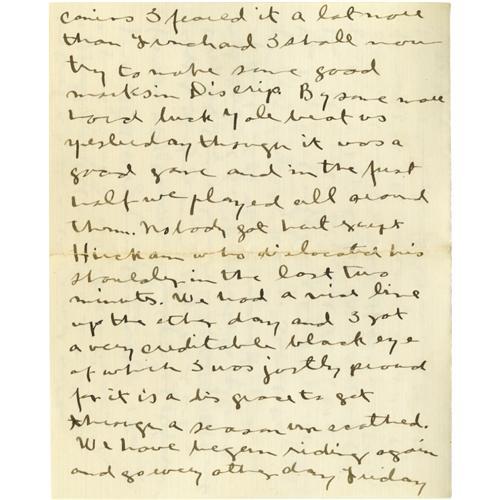 conics I feared it a lot more
than French and I shall now
try to make some good
marks in Discrip. By some more
hard luck Yale beat us
yesterday though it was a
good game and in the first
half we played all around
them. Nobody got hurt except
Hinckam who dislocated his
shoulder in the last two
minutes. We had a nice line
up the other day and I got
a very creditable black eye
of which I was justly proud
for it is a disgrace to get
through a season unscathed.
We have begun riding again
and go every other day Friday